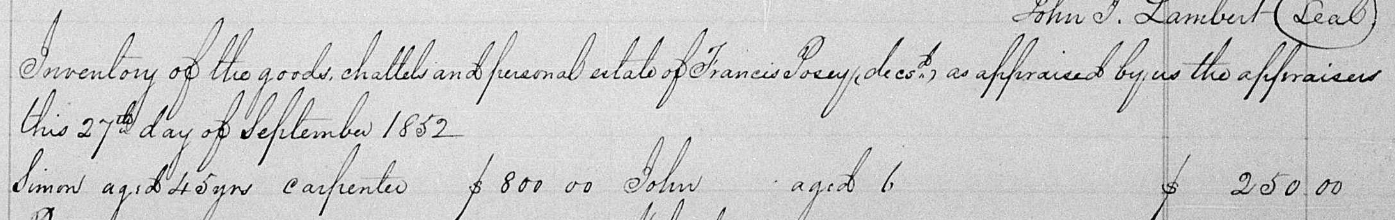 John T. Lambert (Seal)
Inventory of the goods, chattels and personal estate of Francis Posey, (decsd.) as appraised by us the appraisers
this 27th day of September 1852
Simon aged 45 yrs carpenter $ 800 00 John aged 6 $ 250.00